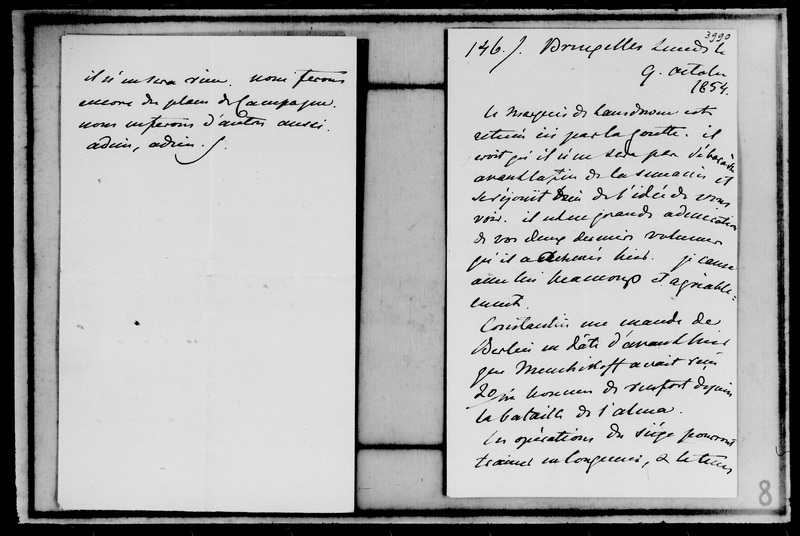 il n'en sera rien. nous ferons
encore des plans de Campagne.
nous en ferons d'autres aussi.
adieu, adieu. J.
3990
146. J. Bruxelles Lundi le
9. octobre
1854.
le Marquis de Lansdowne est
retenu ici par la goutte. il
croit qu'il n'en sera pas débarassé
avant la fin de la semaine et
se réjouit de l'idée de vous
voir. il a une grande admiration
de vos deux derniers volumes
qu'il a terminés hier. je cause
avec lui beaucoup et agréable=
ment.
Constantin me mande de
Berlin en date d'avant hier
que Menchikoff avait reçu
20/m hommes de renfort depuis
la bataille de l'alma.
les opérations du siège pourront
trainer en longueur, & le tems
8